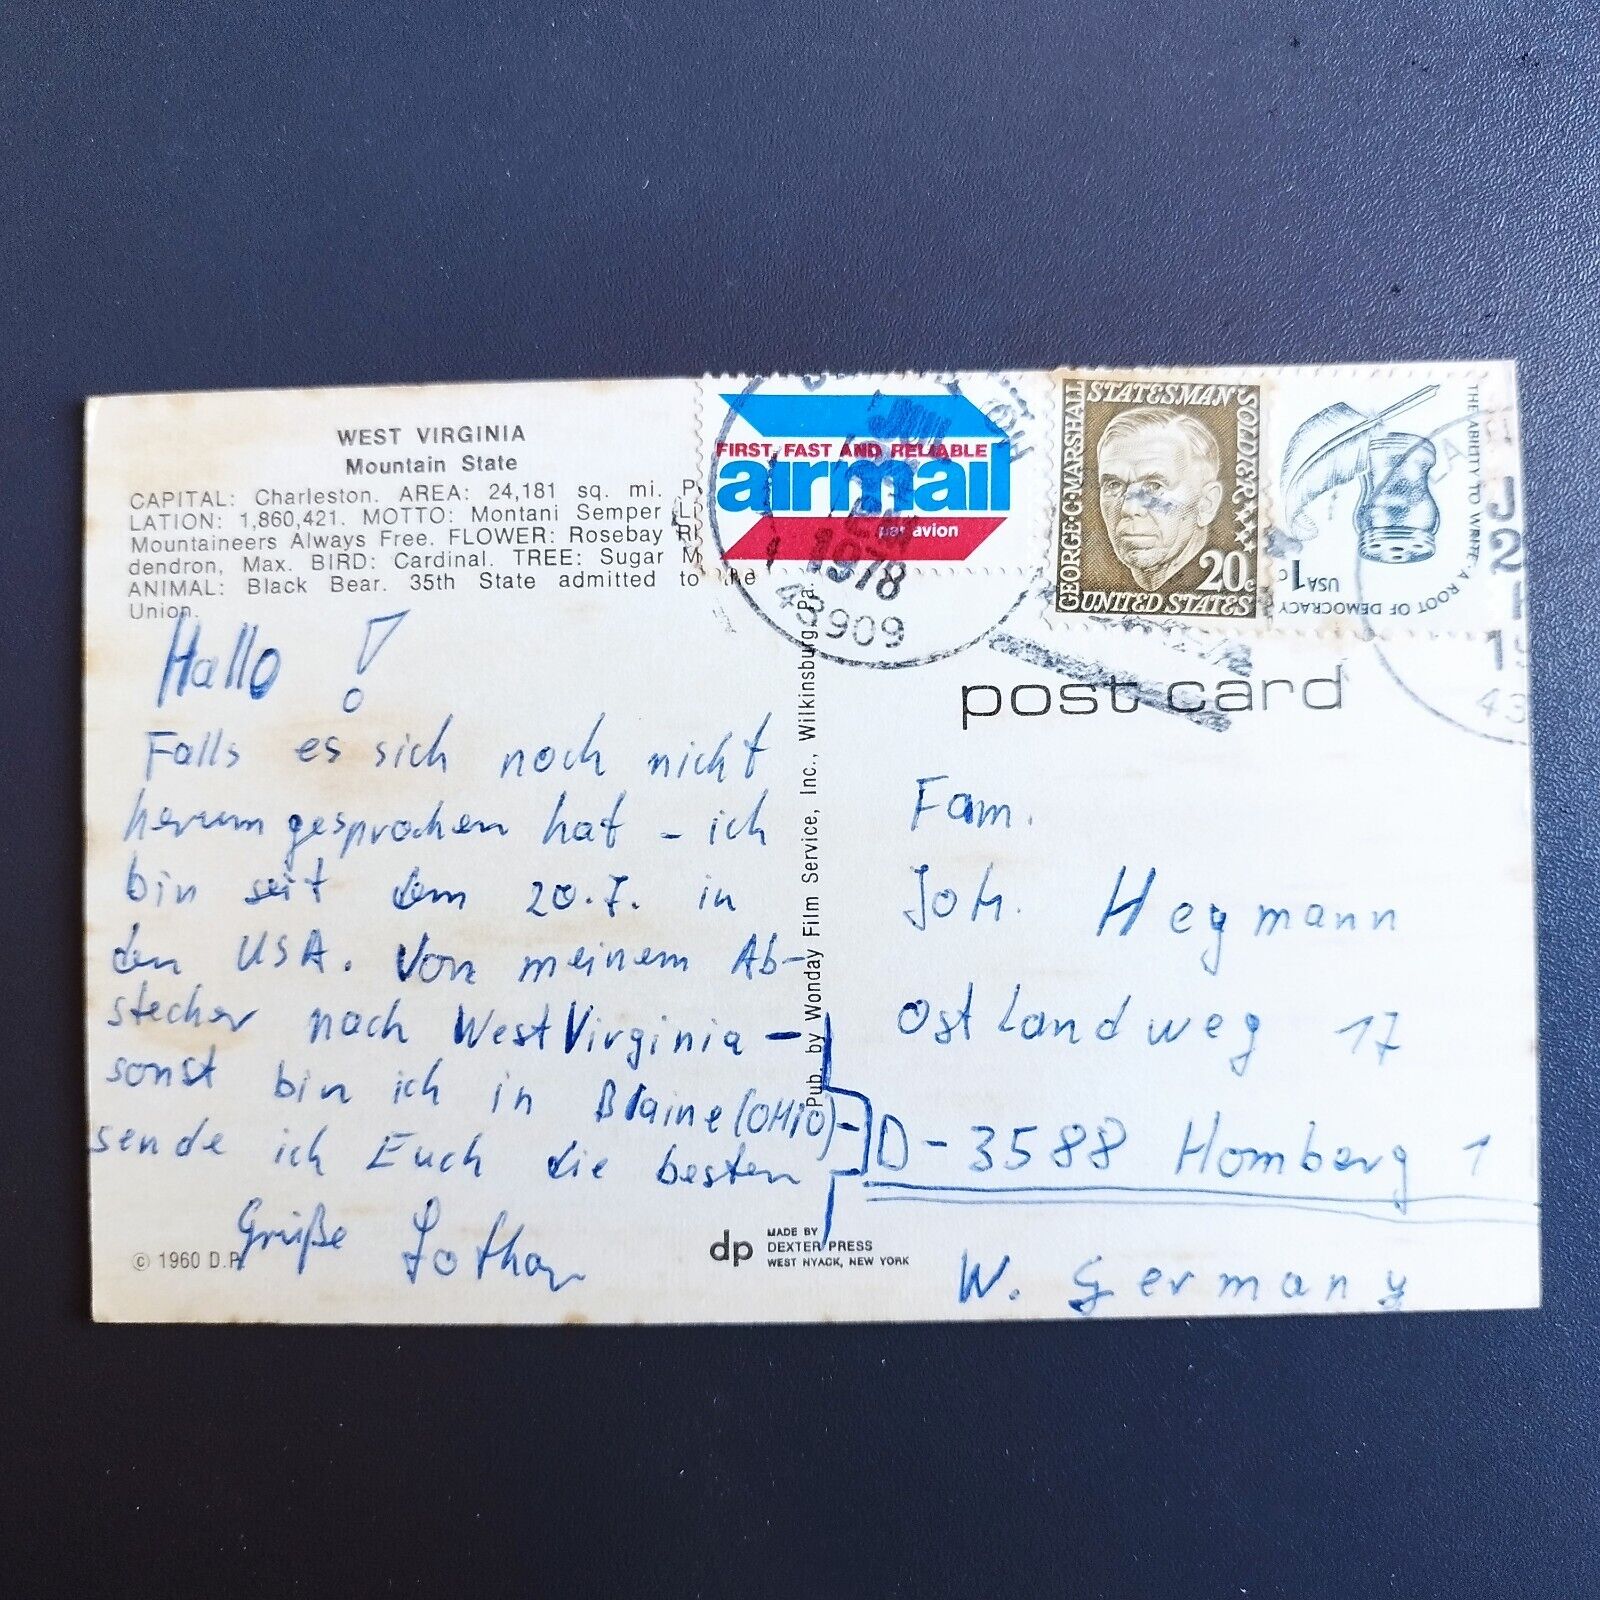 WEST VIRGINIA
Mountain State
CAPITAL: Charleston. AREA: 24,181 sq. mi. P
LATION: 1,860,421. MOTTO: Montani Semper Li
Mountaineers Always Free. FLOWER: Rosebay R
dendron, Max. BIRD: Cardinal. TREE: Sugar M
ANIMAL: Black Bear. 35th State admitted to the
Union.
Hallo !
Falls es sich noch nicht
herumgesprochen hat - ich
bin seit dem 20.7. in
den USA. Von meinem Ab-
stecher nach West Virginia -
sonst bin ich in Blaine (OHIO) -
sende ich Euch die besten
Grüße Lothar
© 1960 D.P.
Pub. by Wonday Film Service, Inc., Wilkinsburg, Pa.
dp
MADE BY
DEXTER PRESS
WEST NYACK, NEW YORK
FIRST, FAST AND RELIABLE
airmail
par avion
JUL
1978
43909
GEORGE C. MARSHALL
STATESMAN
SOLDIER
20c
UNITED STATES
THE ABILITY TO WRITE. A ROOT OF DEMOCRACY
USA 1c
J
2
19
43
post card
Fam.
Joh. Hegmann
Ostlandweg 17
D-3588 Homberg 1
W. Germany